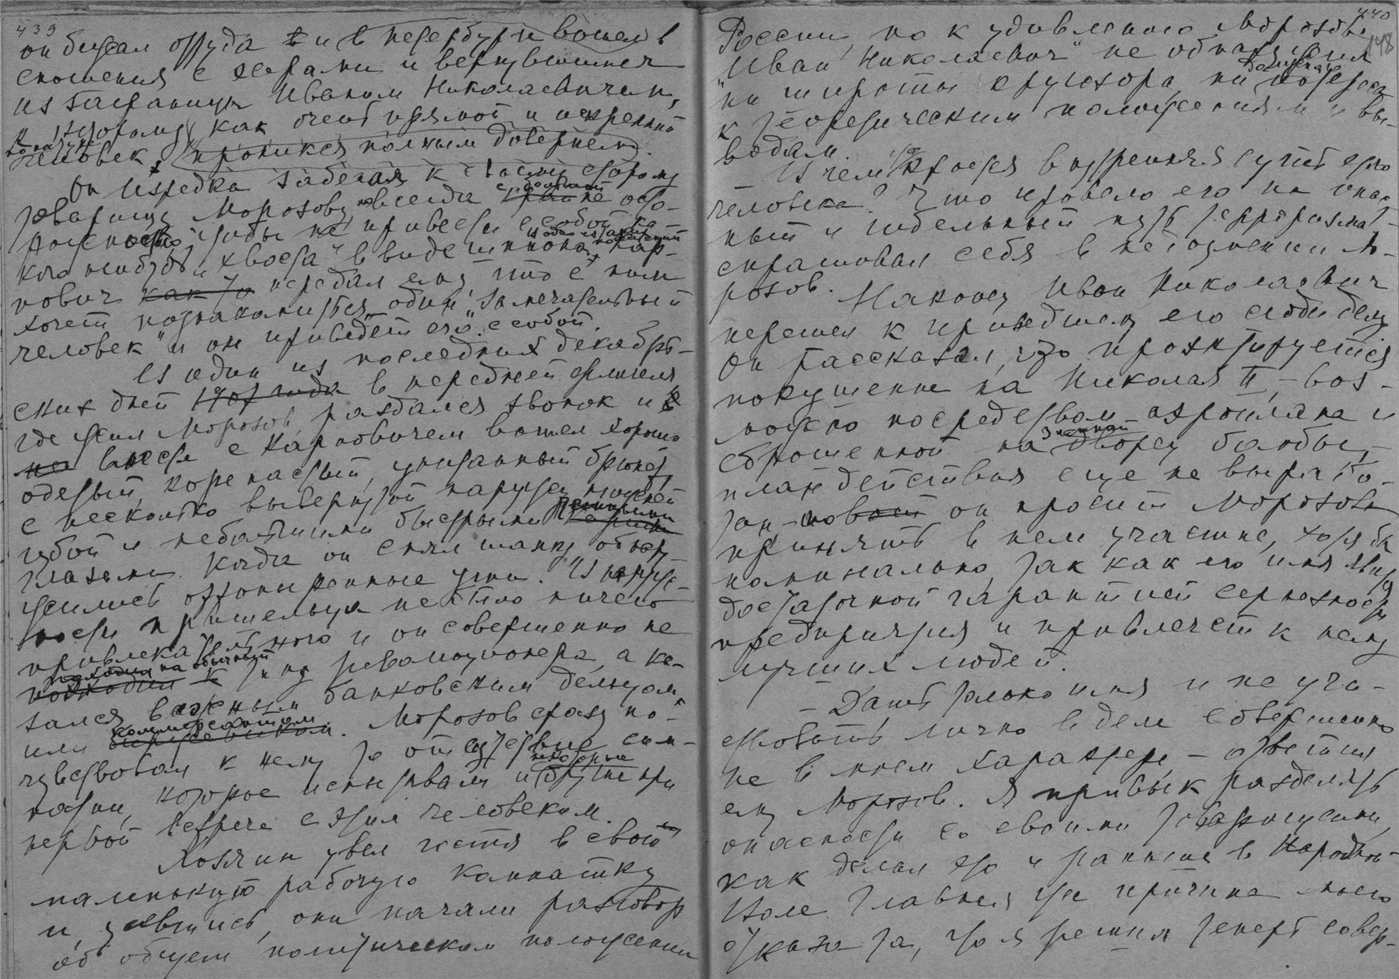 439
он бежал оттуда и в Петербурге вошел в
сношения с эсерами и вернувшимся
из заграницы Иваном Николаевичем,
к которому как очень прямой и искренний
человек, проникся полным доверием.
Он изредка забегал к своему старому
товарищу Морозову, всегда с большой осто-
рожностью, чтобы не привести с собой ка-
кого нибудь „хвоста“ в виде шпиона. Кар-
пович передал ему, что с ним
хочет познакомиться один „замечательный
человек“ и он приведет его с собой.
В один из последних декабрь-
ских дней 1907 года в передней флигеля
где жил Морозов, раздался звонок и
вместе с Карповичем вошел хорошо
одетый, коренастый, упитанный брюнет
с несколько вывернутой наружу нижней
губой и небольшими быстрыми
глазами. Когда он снял шапку, обнару-
жились оттопыренные уши. В наруж-
ности пришельца не было ничего
привлекательного и он совершенно не
походил на обычный
тип революционера, а ка-
зался важным банковским дельцом
или коммерсантом. Морозов сразу по-
чувствовал к нему то отсутствие сим-
патии, которое испытывали и другие при
некоторые
первой встрече с этим человеком.
Хозяин увел гостя в свою
маленькую рабочую комнатку
и, усевшись, они начали разговор
об общем политическом положении
440
148
России, но к удивлению Морозова
„Иван Николаевич“ не обнаружил
ни широты кругозора, ни интереса
к теоретическим положениям и вы-
водам.
В чем кроется внутренняя суть этого
человека? Что привело его на опас-
ный и гибельный путь терроризма?
спрашивал себя в недоумении Мо-
розов. Наконец Иван Николаевич
перешел к приведшему его сюда делу
Он рассказал, что проэктируется
покушение на Николая II, – воз-
можно посредством аэроплана и
сброшенной на Зимний дворец бомбы,
план действия еще не вырабо-
тан – но он просит Морозова
принять в нем участие, хотя бы
номинально, так как его имя явится
достаточной гарантией серьезности
предприятия и привлечет к нему
лучших людей.
– Дать только имя и не уча-
ствовать лично в деле совершенно
не в моем характере – ответил
ему Морозов. Я привык разделять
опасности со своими товарищами,
как делал это и раньше в Народной
Воле. Главная же причина моего
отказа та, что я решил теперь совер-